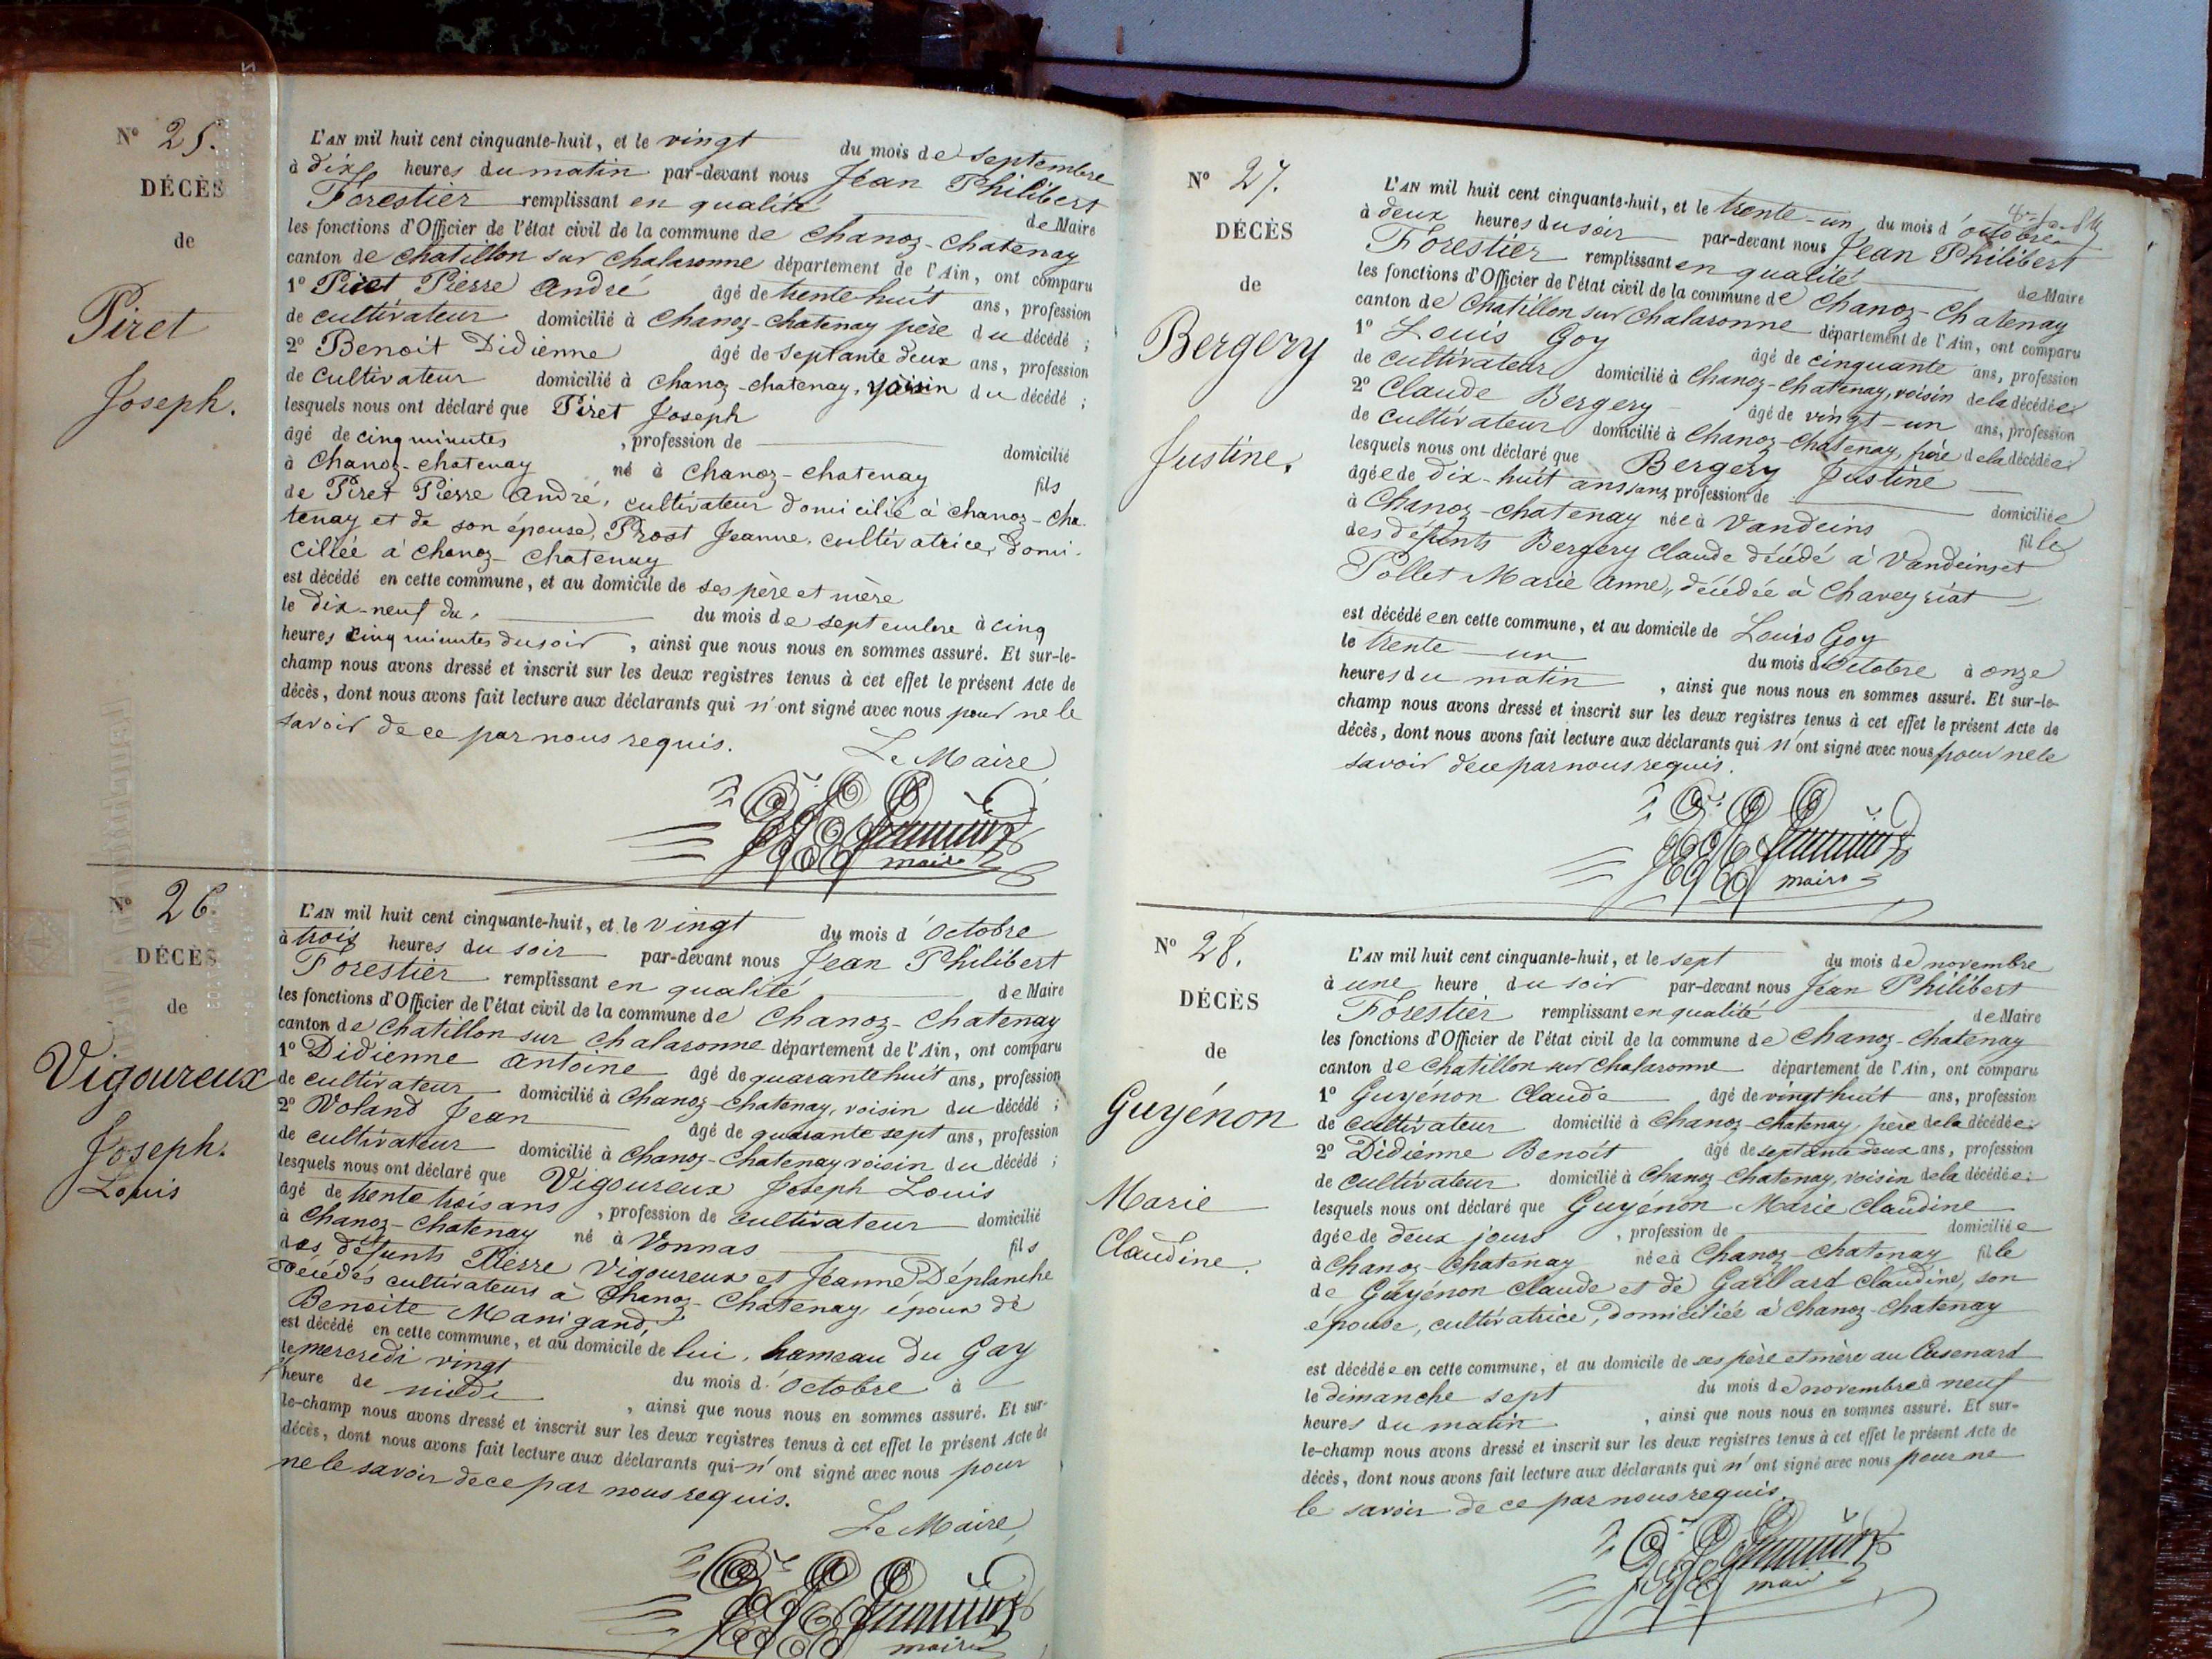 N° 25.
DÉCÈS
de
Piret
Joseph.
L'AN mil huit cent cinquante-huit, et le vingt du mois de septembre
à dix heures du matin par-devant nous Jean Philibert
Forestier remplissant en qualité de Maire
les fonctions d'Officier de l'état civil de la commune de Chanoz-Chatenay
canton de Chatillon sur Chalaronne département de l'Ain, ont comparu
1° Piret Pierre André âgé de trente huit ans, profession
de cultivateur domicilié à Chanoz-Chatenay père du décédé ;
2° Benoit Didienne âgé de septante deux ans, profession
de cultivateur domicilié à Chanoz-Chatenay, voisin du décédé ;
lesquels nous ont déclaré que Piret Joseph
âgé de cinq minutes , profession de domicilié
à Chanoz-Chatenay né à Chanoz-Chatenay fils
de Piret Pierre André, cultivateur domicilié à Chanoz-Cha-
tenay et de son épouse, Prost Jeanne, cultivatrice, domi-
ciliée à Chanoz-Chatenay
est décédé en cette commune, et au domicile de ses père et mère
le dix-neuf du du mois de septembre à cinq
heures cinq minutes du soir , ainsi que nous nous en sommes assuré. Et sur-le-
champ nous avons dressé et inscrit sur les deux registres tenus à cet effet le présent Acte de
décès, dont nous avons fait lecture aux déclarants qui n'ont signé avec nous pour ne le
savoir de ce par nous requis.
Le Maire
maire
N° 26.
DÉCÈS
de
Vigoureux
Joseph.
Louis
L'AN mil huit cent cinquante-huit, et le vingt du mois d'octobre
à trois heures du soir par-devant nous Jean Philibert
Forestier remplissant en qualité de Maire
les fonctions d'Officier de l'état civil de la commune de Chanoz-Chatenay
canton de Chatillon sur Chalaronne département de l'Ain, ont comparu
1° Didienne Antoine âgé de quarante huit ans, profession
de cultivateur domicilié à Chanoz-Chatenay, voisin du décédé ;
2° Voland Jean âgé de quarante sept ans, profession
de cultivateur domicilié à Chanoz-Chatenay voisin du décédé ;
lesquels nous ont déclaré que Vigoureux Joseph Louis
âgé de trente trois ans , profession de cultivateur domicilié
à Chanoz-Chatenay né à Vonnas fils
des défunts Pierre Vigoureux et Jeanne Déplanche
décédés cultivateurs à Chanoz-Chatenay, époux de
Benoite Manigand,
est décédé en cette commune, et au domicile de lui, hameau du Gay
le mercredi vingt du mois d'Octobre à
heure de midi , ainsi que nous nous en sommes assuré. Et sur-
le-champ nous avons dressé et inscrit sur les deux registres tenus à cet effet le présent Acte de
décès, dont nous avons fait lecture aux déclarants qui n'ont signé avec nous pour
ne le savoir de ce par nous requis.
Le Maire,
maire
N° 27.
DÉCÈS
de
Bergery
Justine.
L'AN mil huit cent cinquante-huit, et le trente-un du mois d'octobre
à deux heures du soir par-devant nous Jean Philibert
Forestier remplissant en qualité de Maire
les fonctions d'Officier de l'état civil de la commune de Chanoz-Chatenay
canton de Chatillon sur Chalaronne département de l'Ain, ont comparu
1° Louis Goy âgé de cinquante ans, profession
de cultivateur domicilié à Chanoz-Chatenay, voisin de la décédée ;
2° Claude Bergery âgé de vingt-un ans, profession
de cultivateur domicilié à Chanoz-Chatenay, de la décédée
lesquels nous ont déclaré que Bergery Justine
âgée de dix-huit ans sans profession de domiciliée
à Chanoz-Chatenay née à Vandeins fille
des défunts Bergery Claude décédé à Vandeins et
Pollet Marie Anne, décédée à Chaveyriat
est décédée en cette commune, et au domicile de Louis Goy
le trente-un du mois d'Octobre à onze
heures du matin , ainsi que nous nous en sommes assuré. Et sur-le-
champ nous avons dressé et inscrit sur les deux registres tenus à cet effet le présent Acte de
décès, dont nous avons fait lecture aux déclarants qui n'ont signé avec nous pour ne le
savoir de ce par nous requis.
maire
N° 28.
DÉCÈS
de
Guyénon
Marie
Claudine.
L'AN mil huit cent cinquante-huit, et le sept du mois de novembre
à une heure du soir par-devant nous Jean Philibert
Forestier remplissant en qualité de Maire
les fonctions d'Officier de l'état civil de la commune de Chanoz-Chatenay
canton de Chatillon sur Chalaronne département de l'Ain, ont comparu
1° Guyénon Claude âgé de vingt huit ans, profession
de cultivateur domicilié à Chanoz-Chatenay, père de la décédée ;
2° Didienne Benoit âgé de septante deux ans, profession
de cultivateur domicilié à Chanoz-Chatenay, voisin de la décédée ;
lesquels nous ont déclaré que Guyénon Marie Claudine
âgée de deux jours , profession de domiciliée
à Chanoz-Chatenay née à Chanoz-Chatenay fille
de Guyénon Claude et de Gaillard Claudine, son
épouse, cultivatrice, domiciliée à Chanoz-Chatenay
est décédée en cette commune, et au domicile de ses père et mère au Cusenard
le dimanche sept du mois de novembre à neuf
heures du matin , ainsi que nous nous en sommes assuré. Et sur-
le-champ nous avons dressé et inscrit sur les deux registres tenus à cet effet le présent Acte de
décès, dont nous avons fait lecture aux déclarants qui n'ont signé avec nous pour ne
le savoir de ce par nous requis.